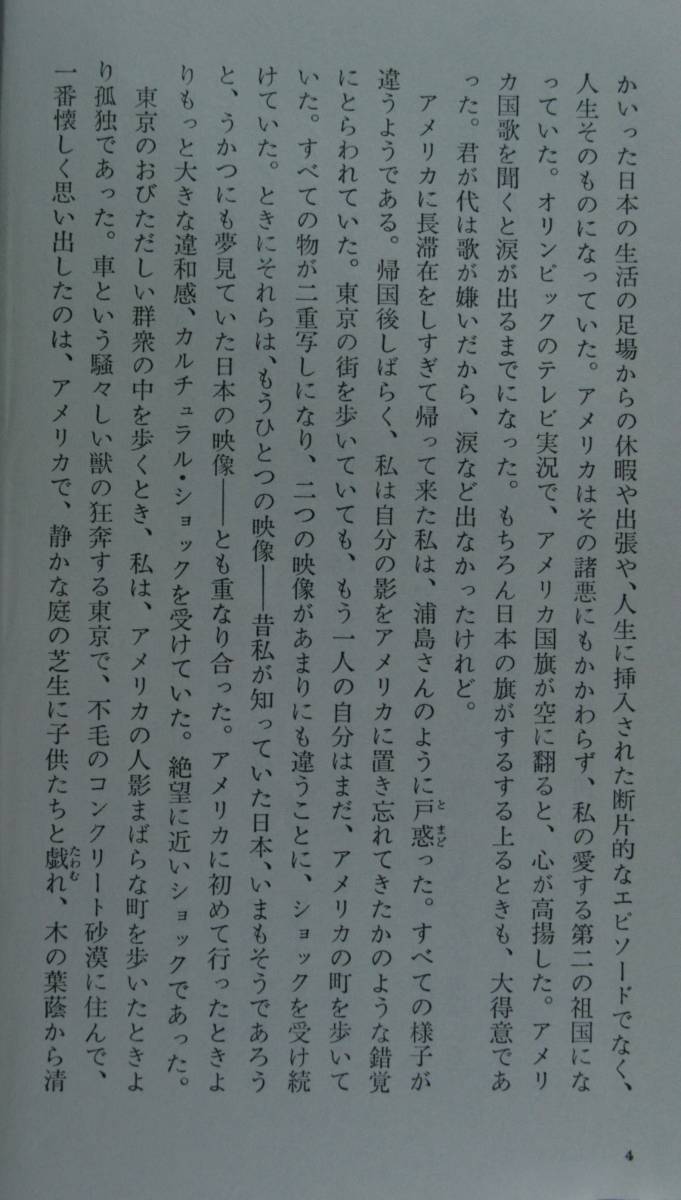 かいった日本の生活の足場からの休暇や出張や、人生に挿入された断片的なエピソードでなく、
人生そのものになっていた。アメリカはその諸悪にもかかわらず、私の愛する第二の祖国にな
っていた。オリンピックのテレビ実況で、アメリカ国旗が空に翻ると、心が高揚した。アメリ
カ国歌を聞くと涙が出るまでになった。もちろん日本の旗がするする上るときも、大得意であ
った。君が代は歌が嫌いだから、涙など出なかったけれど。
アメリカに長滞在をしすぎて帰って来た私は、浦島さんのように戸惑った。すべての様子が
違うようである。帰国後しばらく、私は自分の影をアメリカに置き忘れてきたかのような錯覚
にとらわれていた。東京の街を歩いていても、もう一人の自分はまだ、アメリカの町を歩いて
いた。すべての物が二重写しになり、二つの映像があまりにも違うことに、ショックを受け続
けていた。ときにそれらは、もうひとつの映像——昔私が知っていた日本、いまもそうであろう
と、うかつにも夢見ていた日本の映像——とも重なり合った。アメリカに初めて行ったときよ
りもっと大きな違和感、カルチュラル・ショックを受けていた。絶望に近いショックであった。
東京のおびただしい群衆の中を歩くとき、私は、アメリカの人影まばらな町を歩いたときよ
り孤独であった。車という騒々しい獣の狂奔する東京で、不毛のコンクリート砂漠に住んで、
一番懐しく思い出したのは、アメリカで、静かな庭の芝生に子供たちと戯れ、木の葉蔭から清
4